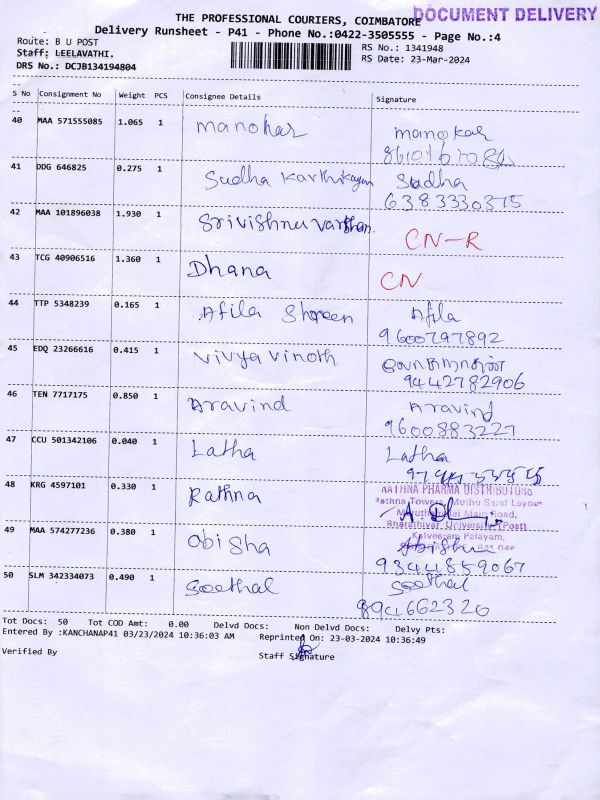 THE PROFESSIONAL COURIERS, COIMBATORE
DOCUMENT DELIVERY
Delivery Runsheet - P41 - Phone No.:0422-3505555 - Page No.:4
Route: B U POST
RS No.: 1341948
Staff; LEELAVATHI.
RS Date: 23-Mar-2024
DRS No.: DCJB134194804
S No Consignment No Weight PCS Consignee Details Signature
40 MAA 571555085 1.065 1 manohar manokar
41 DDG 646825 0.275 1 Sudha Karthikayan Sudha
6383330375
42 MAA 101896038 1.930 1 Srivishnu varthan. CN-R
43 TCG 40906516 1.360 1 Dhana CN
44 TTP 5348239 0.165 1 Afila Shreen Afila
9600797892
45 EDQ 23266616 0.415 1 vivya vinoth
9442782906
46 TEN 7717175 0.850 1 Aravind Aravind
9600883227
47 CCU 501342106 0.040 1 Latha Latha
48 KRG 4597101 0.330 1 Rathna
RATHNA PHARMA DISTRIBUTORS
Rathna Towers, Muthu Layout
Main Road,
Bharathiyar University (Post)
Kalveeram Palayam,
49 MAA 574277236 0.380 1 obisha
9344859067
50 SLM 342334073 0.490 1 Soethal Soethal
894662320
Tot Docs: 50 Tot COD Amt: 0.00 Delvd Docs: Non Delvd Docs: Delvy Pts:
Entered By :KANCHANAP41 03/23/2024 10:36:03 AM Reprinted On: 23-03-2024 10:36:49
Verified By Staff Signature